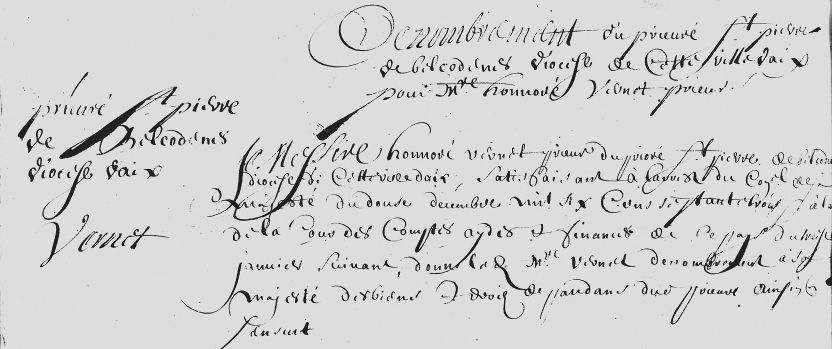 Denombrement du prieuré St pierre
de belcodenes diocese de Cette ville daix
pour Mre honnoré Vernet prieur
prieuré St pierre
de Belcodenes
diocese daix
Vernet
Messire honnoré vernet prieur du prioré St pierre de belcodenes
diocese de Cette ville daix, satisfaisant à larrest du Coņel de sa
majesté du douse decembre mil six Cens septante trois
de la Cour des Comptes aydes et finances de ce pais du treise
janvier suivant, donne led Mre vernet denombrement à sa
majesté des biens et drois dependans dud prieure ainsi que
sensuit